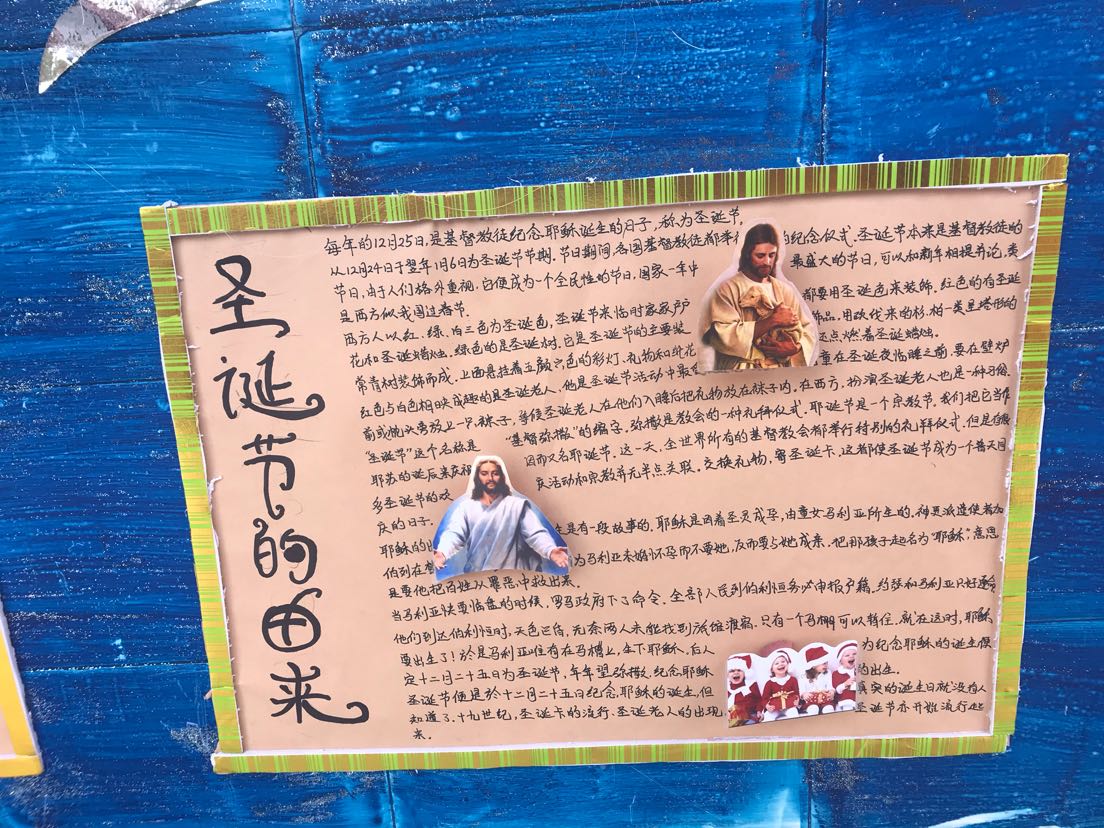 圣诞节的由来
每年的12月25日,是基督教徒纪念耶稣诞生的日子,称为圣诞节.
从12月24日于翌年1月6日为圣诞节节期.节日期间,各国基督教徒都举行 的纪念仪式.圣诞节本来是基督教徒的
节日,由于人们格外重视,它便成为一个全民性的节日,国家一年中 最盛大的节日,可以和新年相提并论,类
是西方似我国过春节.
西方人以红、绿、白三色为圣诞色,圣诞节来临时家家户户 都要用圣诞色来装饰.红色的有圣诞
花和圣诞蜡烛.绿色的是圣诞树.它是圣诞节的主要装 饰品,用砍伐来的杉、柏一类呈塔形的
常青树装饰而成.上面悬挂着五颜六色的彩灯、礼物和纸花 点燃着圣诞蜡烛.
红色与白色相映成趣的是圣诞老人,他是圣诞节活动中最 童在圣诞夜临睡之前,要在壁炉
前或枕头旁放上一只袜子,等候圣诞老人在他们入睡后把礼物放在袜子内.在西方,扮演圣诞老人也是一种习俗.
“圣诞节”这个名称是 “基督弥撒”的缩写.弥撒是教会的一种礼拜仪式.耶诞节是一个宗教节.我们把它当作
耶苏的诞辰来庆祝 因而又名耶诞节.这一天,全世界所有的基督教会都举行特别的礼拜仪式.但是有很
多圣诞节的欢 庆活动和宗教并无半点关联.交换礼物,寄圣诞卡,这都使圣诞节成为一个普天同
庆的日子.
耶稣的 生是有一段故事的,耶稣是因着圣灵成孕,由童女马利亚所生的.神更派遣使者加
伯列在 为马利亚未婚怀孕而不要她,反而要与她成亲,把那孩子起名为“耶稣”,意思
是要他把百姓从罪恶中救出来.
当马利亚快要临盆的时候,罗马政府下了命令,全部人民到伯利恒务必申报户籍,约瑟和马利亚只好遵命
他们到达伯利恒时,天色已昏,无奈两人未能找到旅馆渡宿,只有一个马棚可以暂住,就在这时,耶稣
要出生了!於是马利亚唯有在马槽上,生下耶稣.后人 为纪念耶稣的诞生便
定十二月二十五日为圣诞节,年年望弥撒,纪念耶稣 的出生.
圣诞节便是於十二月二十五日纪念耶稣的诞生,但 真实的诞生日就没有人
知道了.十九世纪,圣诞卡的流行、圣诞老人的出现, 圣诞节亦开始流行起
来.